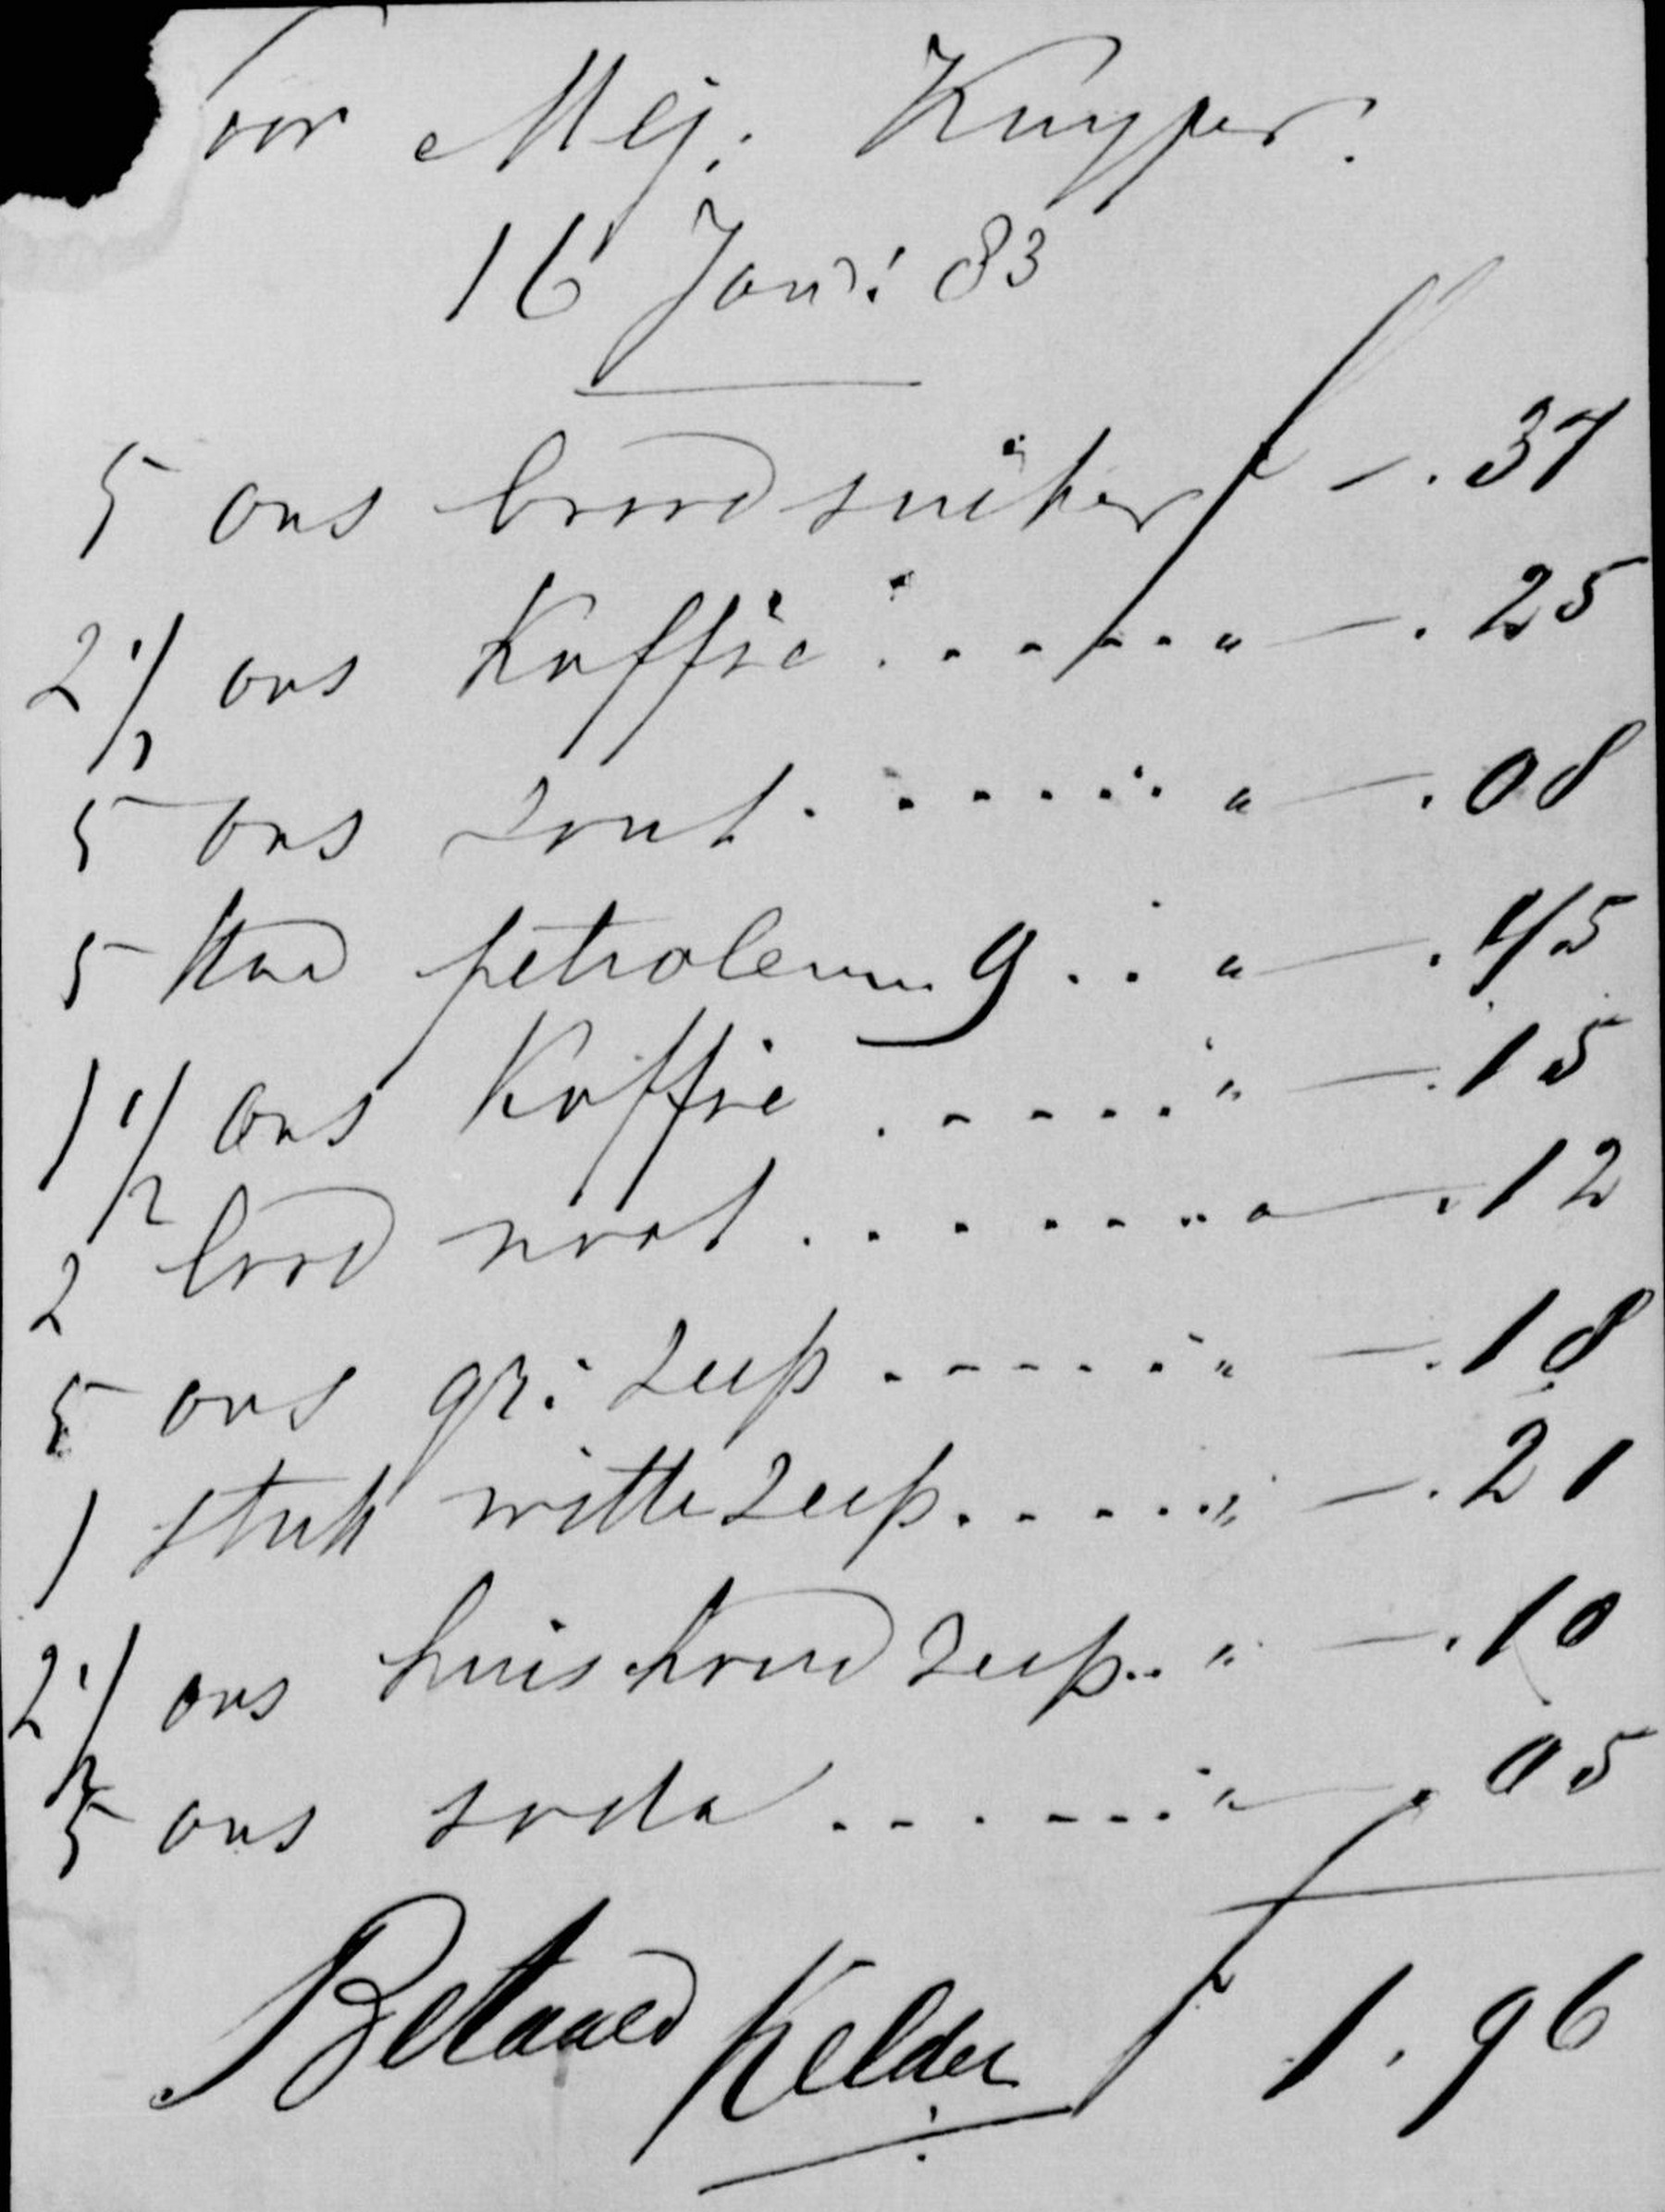 Voor Mej: Kuyper.
16 Jan: 83
5 ons broodsuiker f -.37
2 1/2 ons Koffie . . . . . . " -.25
5 ons zout . . . . . . . " -.08
5 kan petroleum 9 . . " -.45
1 1/2 ons Koffie . . . . . " -.15
2 lood noot . . . . . . . " -.12
5 ons gr: zeep . . . . . . " -.18
1 stuk witte zeep . . . . . " -.21
2 1/2 ons huishoud zeep . . " -.10
5 ons soda . . . . . . . " -.05
Betaald Kelder f 1.96